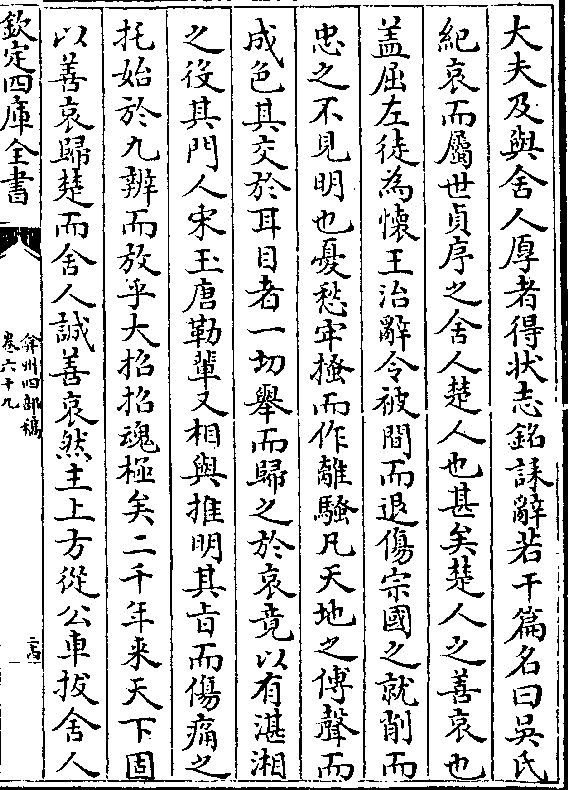 大夫及與舍人厚者得狀志銘誄辭若干篇名曰吳氏
紀哀而屬世貞序之舍人楚人也甚矣楚人之善哀也
盖屈左徒為懷王治辭令被間而退傷宗國之就削而
忠之不見明也憂愁牢搔而作離騷凡天地之傅聲而
成色其交於耳目者一切舉而歸之於哀竟以有湛湘
之役其門人宋玉唐勒輩又相與推明其旨而傷痛之
托始於九辨而放乎大招招魂極矣二千年来天下固
以善哀歸楚而舍人誠善哀然主上方從公車拔舍人
欽定四庫全書
弇州四部稿
卷六十九